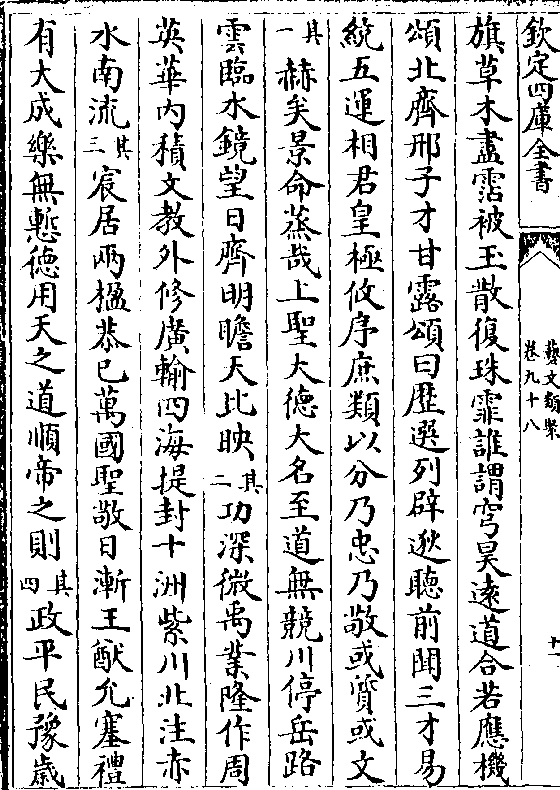 欽定四庫全書
藝文類聚
卷九十八
十一
旗草木盡霑被玉散復珠霏誰謂穹昊遠道合若應機
頌北齊邢子才甘露頌曰歷選列辟逖聽前聞三才易
統五運相君皇極攸序庶類以分乃忠乃敬或質或文
其一赫矣景命蒸哉上聖大德大名至道無競川停岳路
雲臨水鏡望日齊明瞻天比映其二功深微禹業隆作周
英華內積文教外修廣輸四海提封十洲紫川北注赤
水南流其三宸居兩楹恭己萬國聖敬日漸王猷允塞禮
有大成樂無慙德用天之道順帝之則其四政平民豫歲